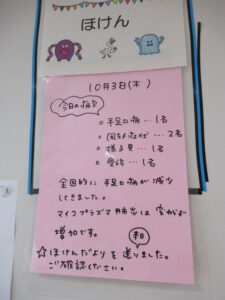 ほけん
10月3日(木)
今日の病欠
○ 手足口病…1名
○ 風邪など…2名
○ 様子見…1名
○ 発幼…1名
全国的に手足口病が減少
してきました。
マイコプラズマ肺炎は変わらず
増加です。
☆ほけんだよりを送りました。
ご確認ください。